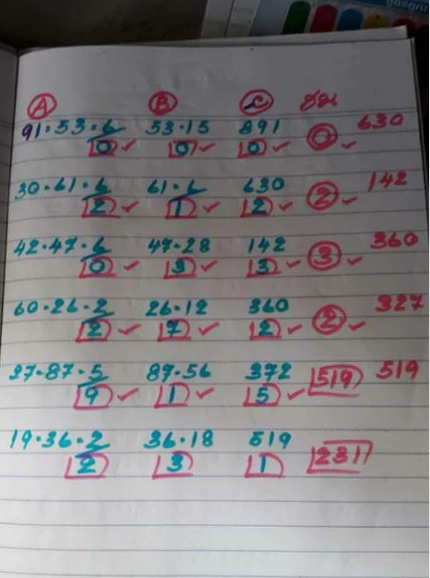 A B C รวม
91.53.6 53.15 891 630
0 0 0 0
30.61.6 61.6 630 142
2 1 2 2
42.47.6 47.28 142 360
0 3 3 3
60.26.2 26.12 360 327
2 7 2 2
27.87.5 87.56 372 519
9 1 5 519
19.36.2 36.18 519
2 3 1 231